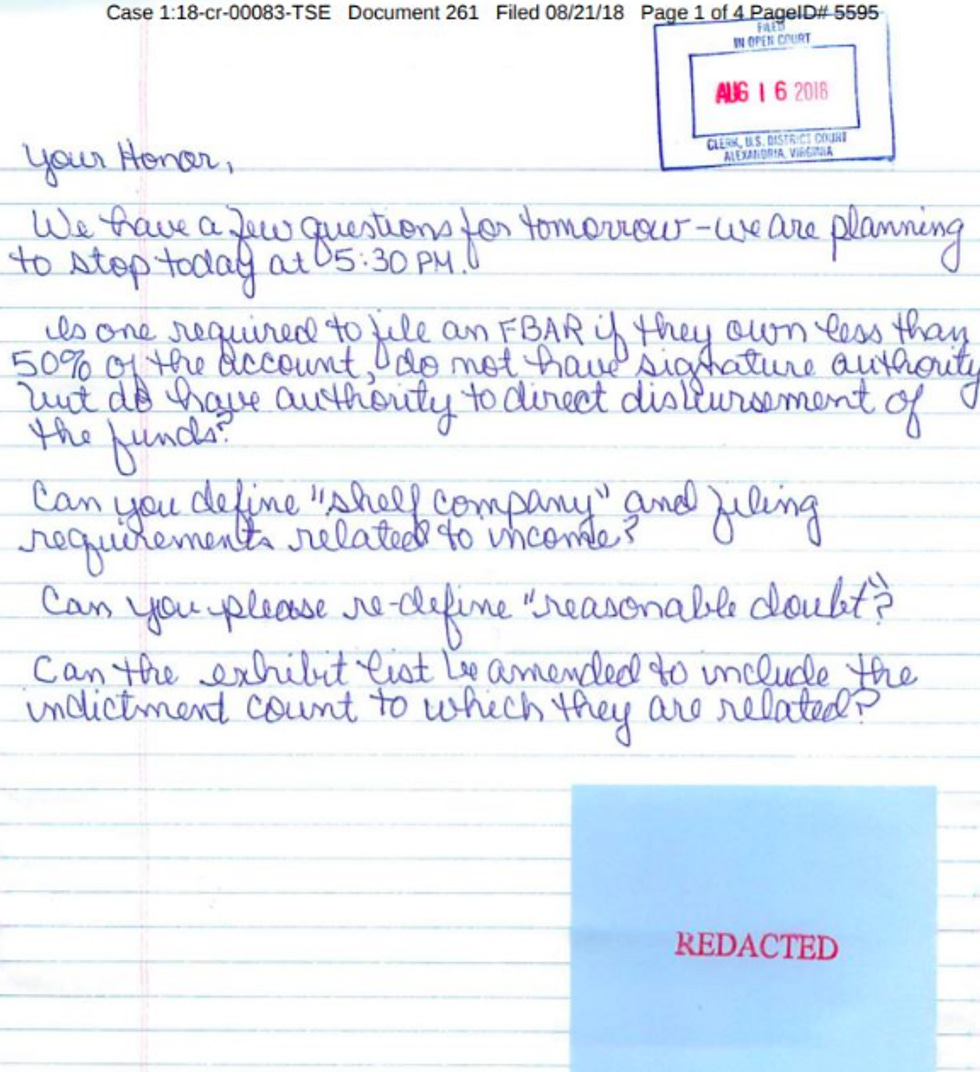 Case 1:18-cr-00083-TSE Document 261 Filed 08/21/18 Page 1 of 4 PageID# 5595
FILED
IN OPEN COURT
AUG 16 2018
CLERK, U.S. DISTRICT COURT
ALEXANDRIA, VIRGINIA
Your Honor,
We have a few questions for tomorrow - we are planning
to stop today at 5:30 PM.
Is one required to file an FBAR if they own less than
50% of the account, do not have signature authority
but do have authority to direct disbursement of
the funds?
Can you define "shelf company" and filing
requirements related to income?
Can you please re-define "reasonable doubt"?
Can the exhibit list be amended to include the
indictment count to which they are related?
REDACTED